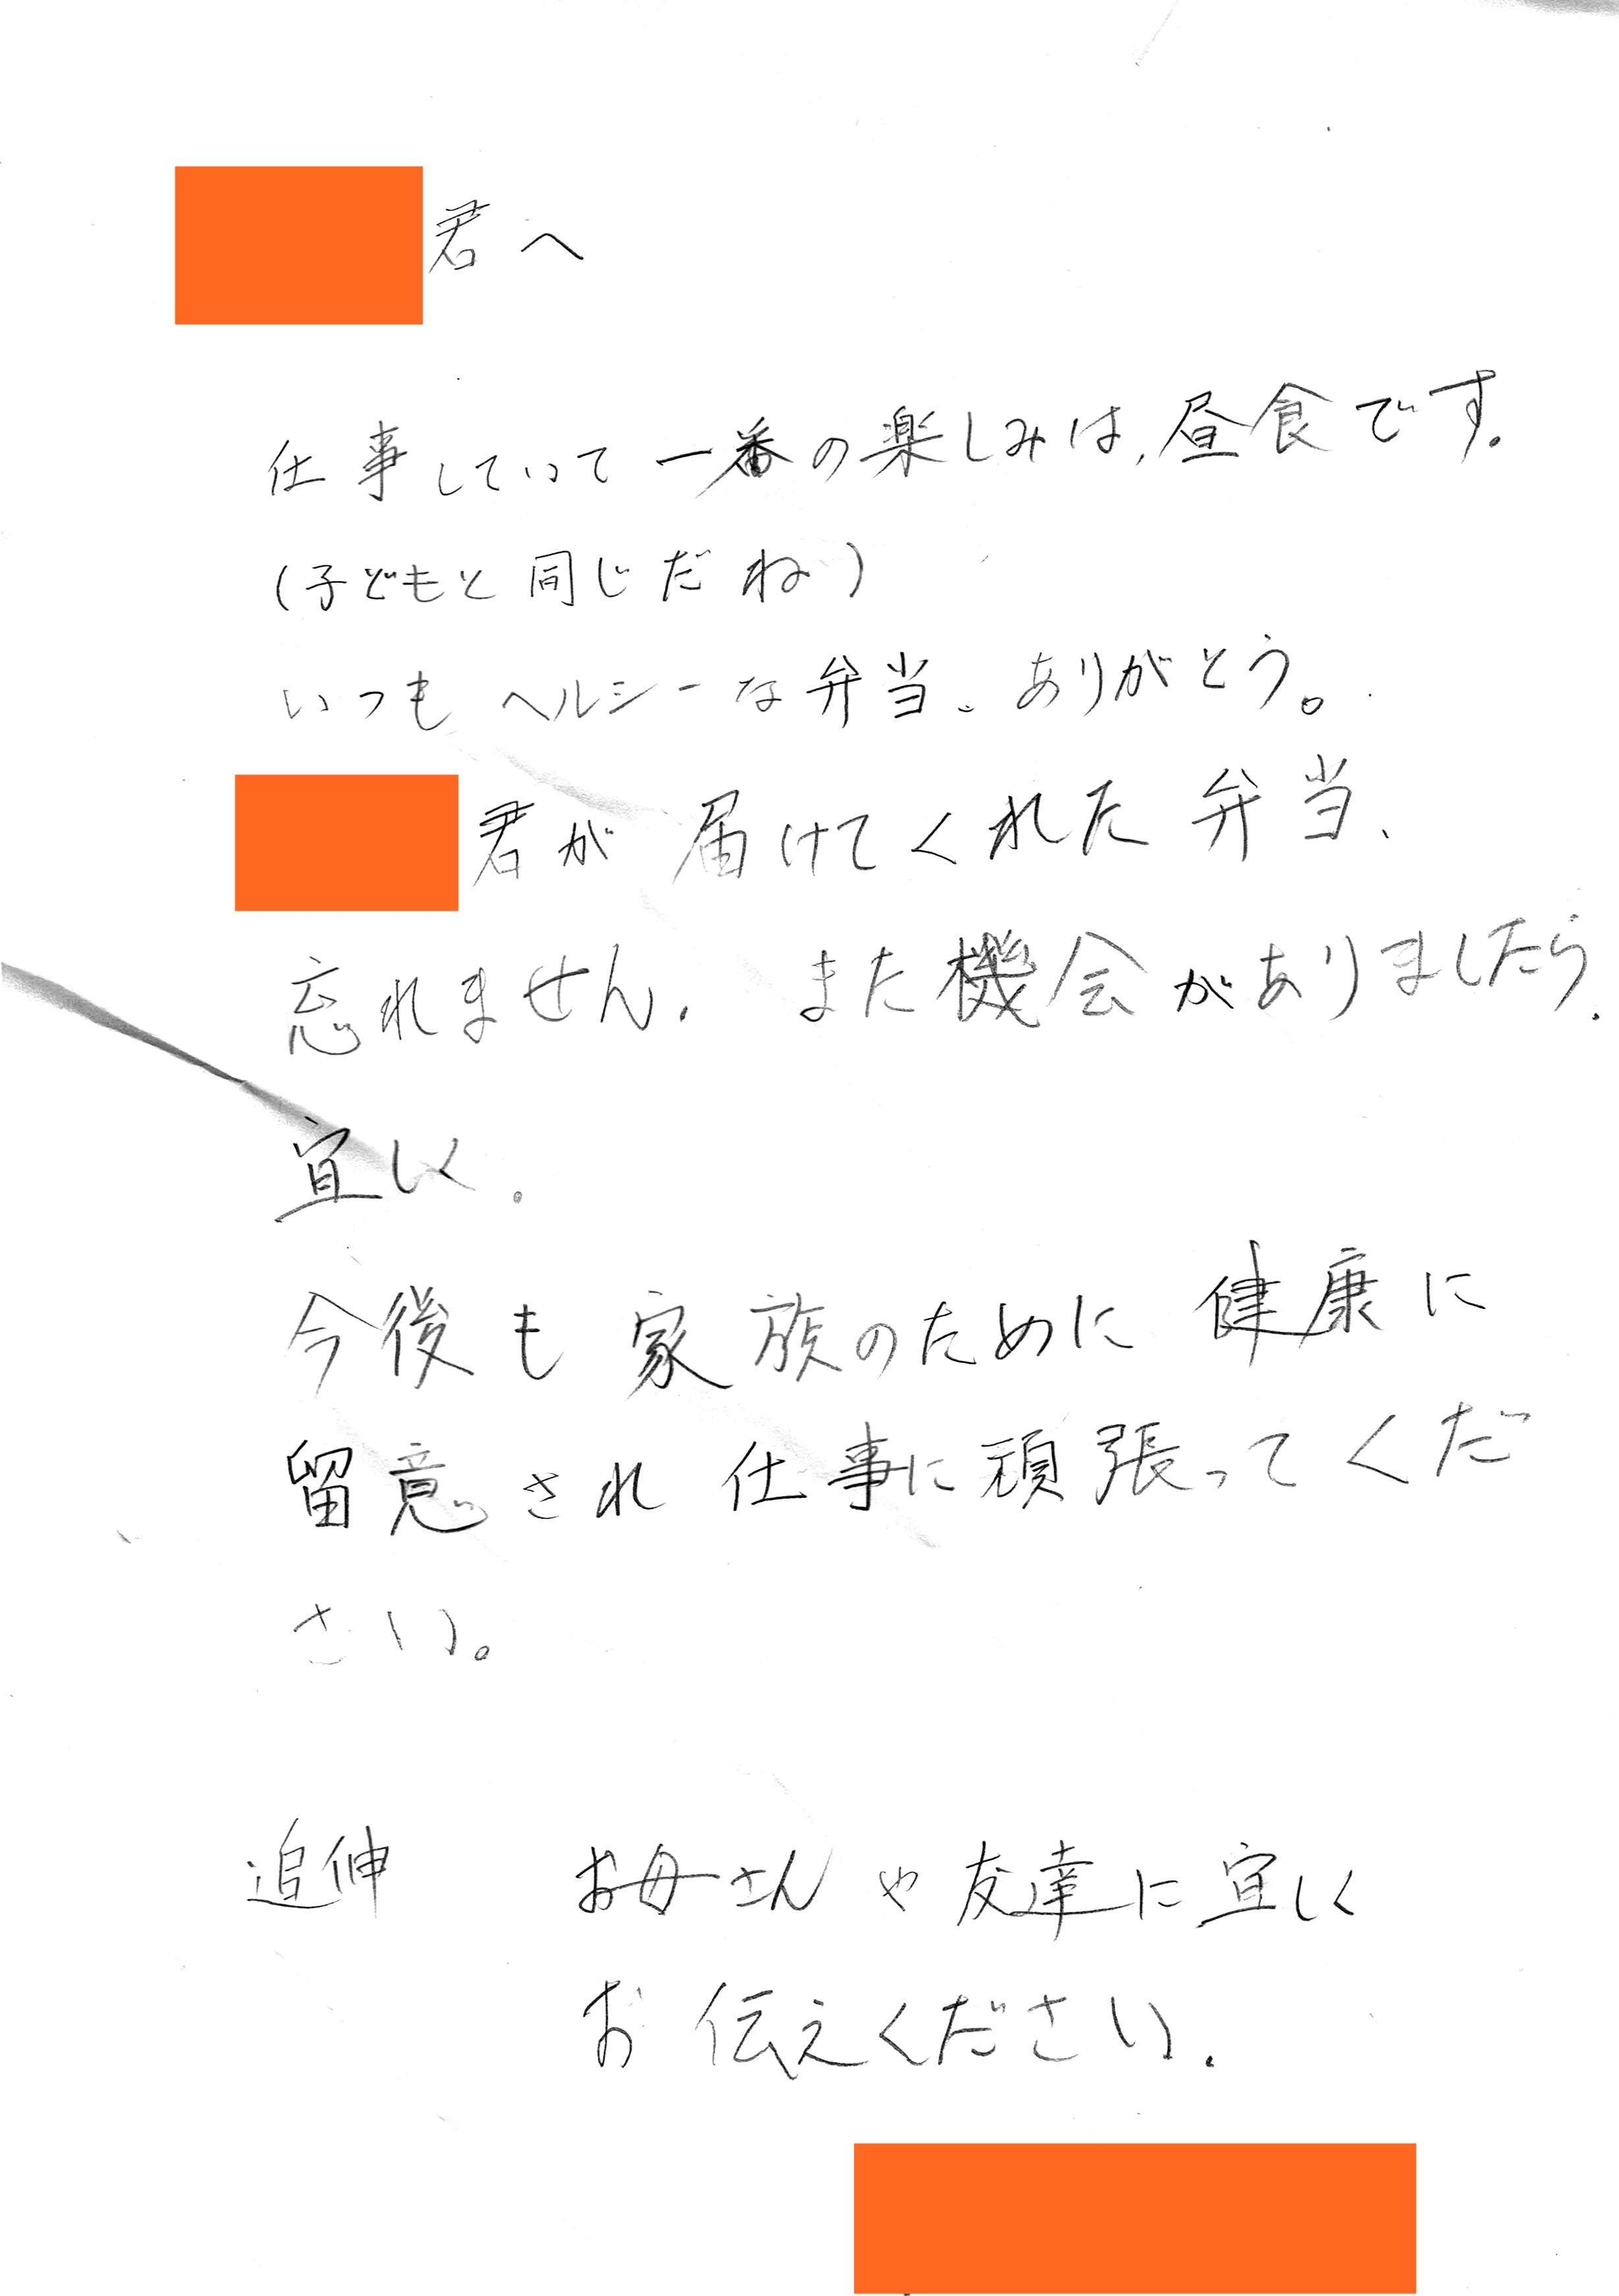 君へ
仕事していて一番の楽しみは、昼食です。
(子どもと同じだね)
いつもヘルシーな弁当、ありがとう。
君が届けてくれた弁当、
忘れません。また機会がありましたら、
宜しく。
今後も家族のために健康に
留意され仕事に頑張ってくだ
さい。
追伸 お母さんや友達に宜しく
お伝えください。